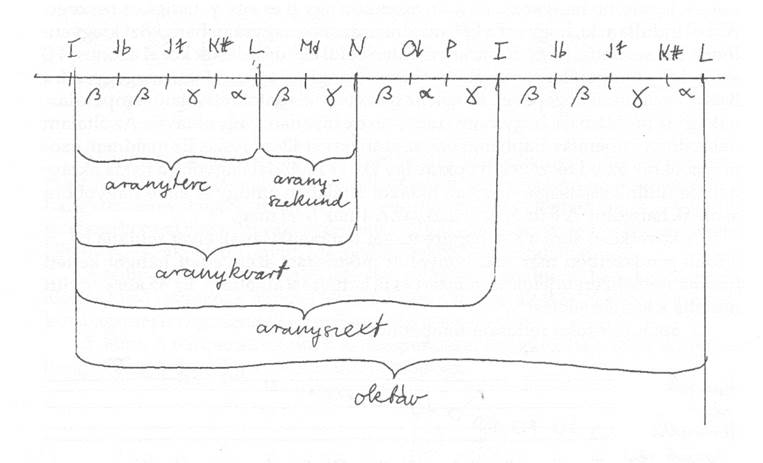 I Jb J# K# L Md N Od P I Jb J# K# L
β β γ α β γ β α γ β β γ α
aranyterc
arany-
szekund
aranykvart
aranyszext
oktáv